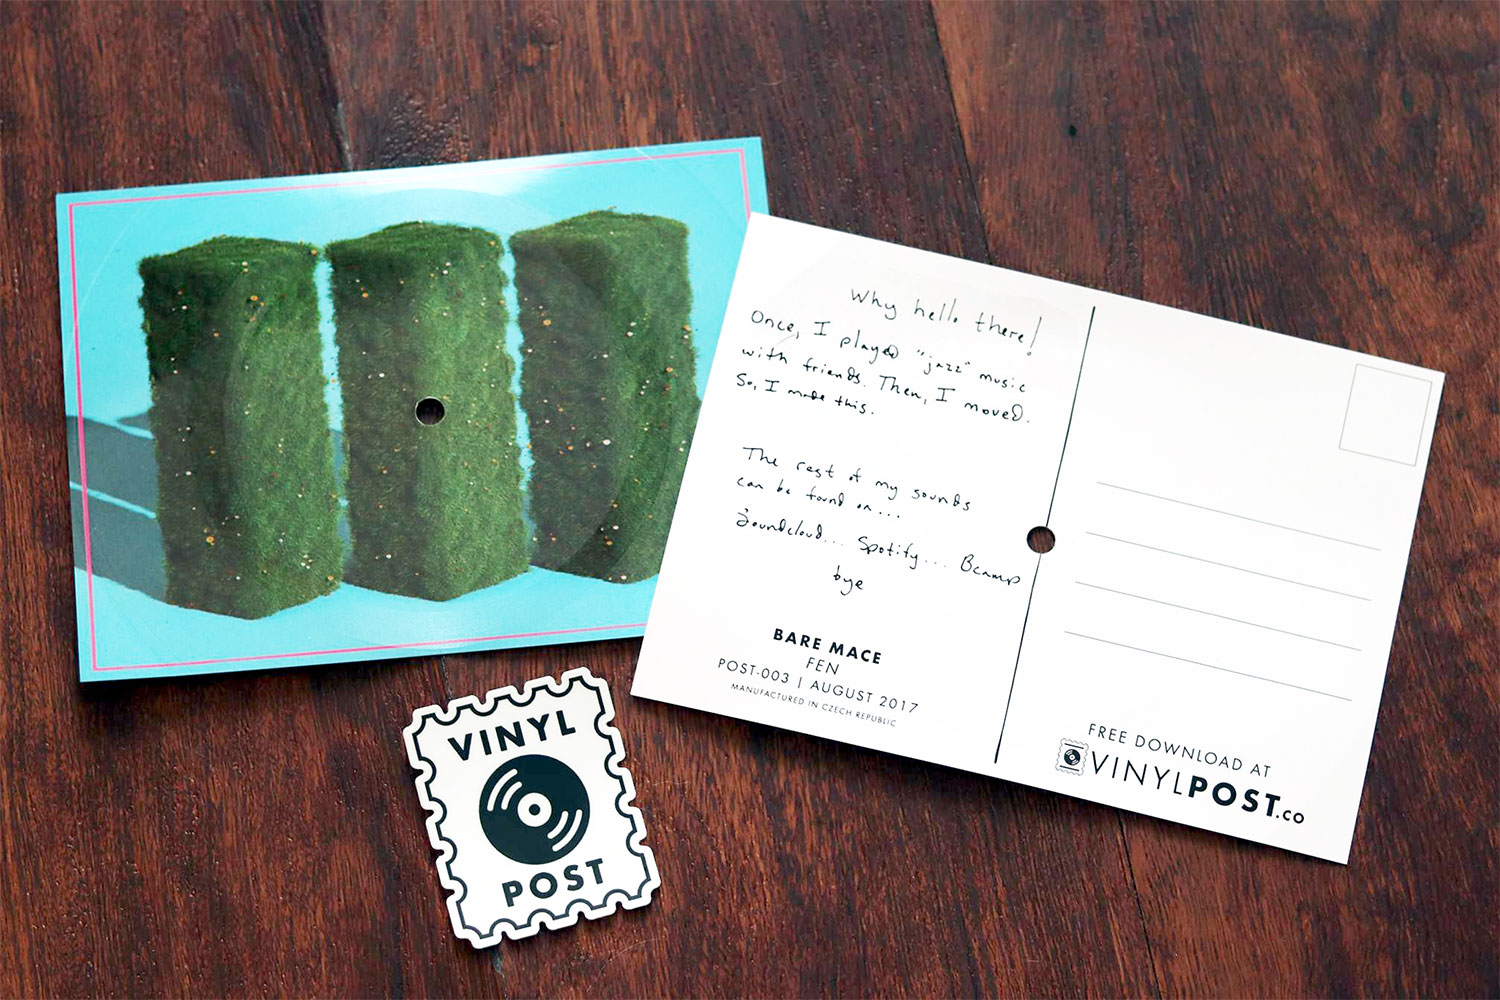 Why hello there!
Once, I played "jazz" music
with friends. Then, I moved.
So, I made this.
The rest of my sounds
can be found on...
Soundcloud... Spotify... Bcamp
bye
BARE MACE
FEN
POST-003 | AUGUST 2017
MANUFACTURED IN CZECH REPUBLIC
FREE DOWNLOAD AT
VINYLPOST.CO
VINYL
POST